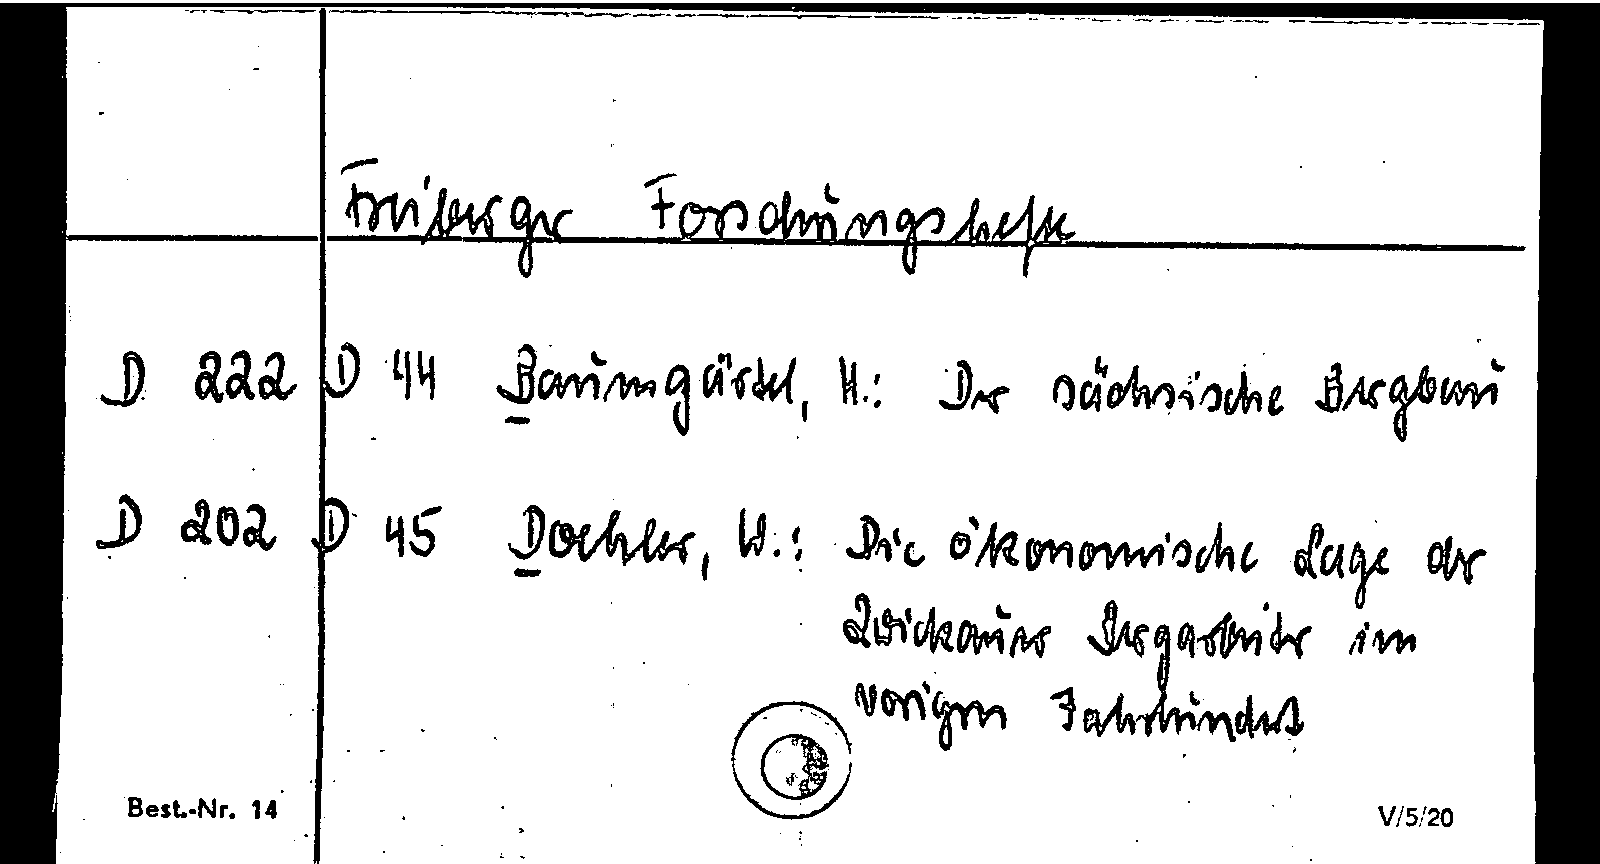 Freiberger Forschungshefte
D 222 D 44 Baumgärtel, H.: Der sächsische Bergbau
D 202 D 45 Doehler, W.: Die ökonomische Lage der
Zwickauer Bergarbeiter im
vorigen Jahrhundert
Best.-Nr. 14 V/5/20